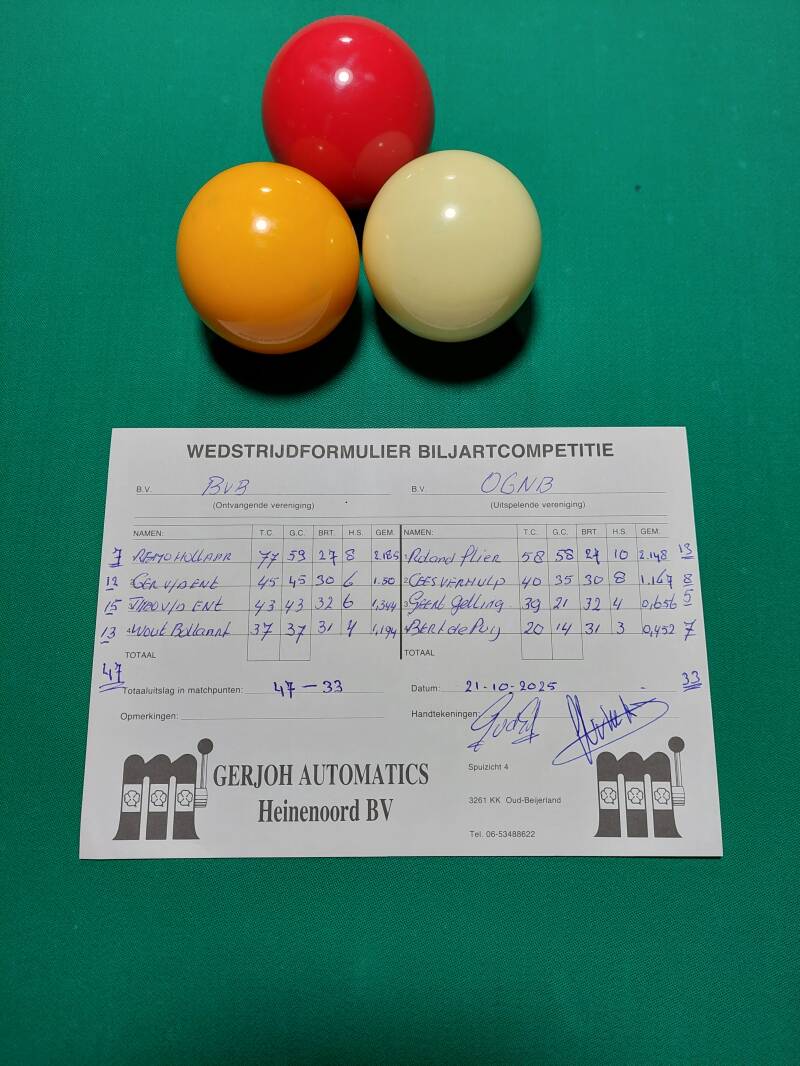 WEDSTRIJDFORMULIER BILJARTCOMPETITIE
B.V. BvB B.V. OGNB
(Ontvangende vereniging) (Uitspelende vereniging)
NAMEN: T.C. G.C. BRT. H.S. GEM. NAMEN: T.C. G.C. BRT. H.S. GEM.
7 REMO HOLLAAR 77 59 27 8 2.185 1 Roland Plier 58 58 27 10 2.148 13
12 2 GER V/D ENT 45 45 30 6 1.50 2 CEES VERHULP 40 35 30 8 1.167 8
15 THEO V/D ENT 43 43 32 6 1,344 3 Geert Gelling 39 21 32 4 0,656 5
13 4 Wout Boltannt 37 37 31 4 1,194 4 BERt de Puij 20 14 31 3 0,452 7
TOTAAL TOTAAL
47 33
Totaaluitslag in matchpunten: 47 - 33 Datum: 21-10-2025
Opmerkingen: Handtekeningen:
GERJOH AUTOMATICS
Heinenoord BV
Spuizicht 4
3261 KK Oud-Beijerland
Tel. 06-53488622